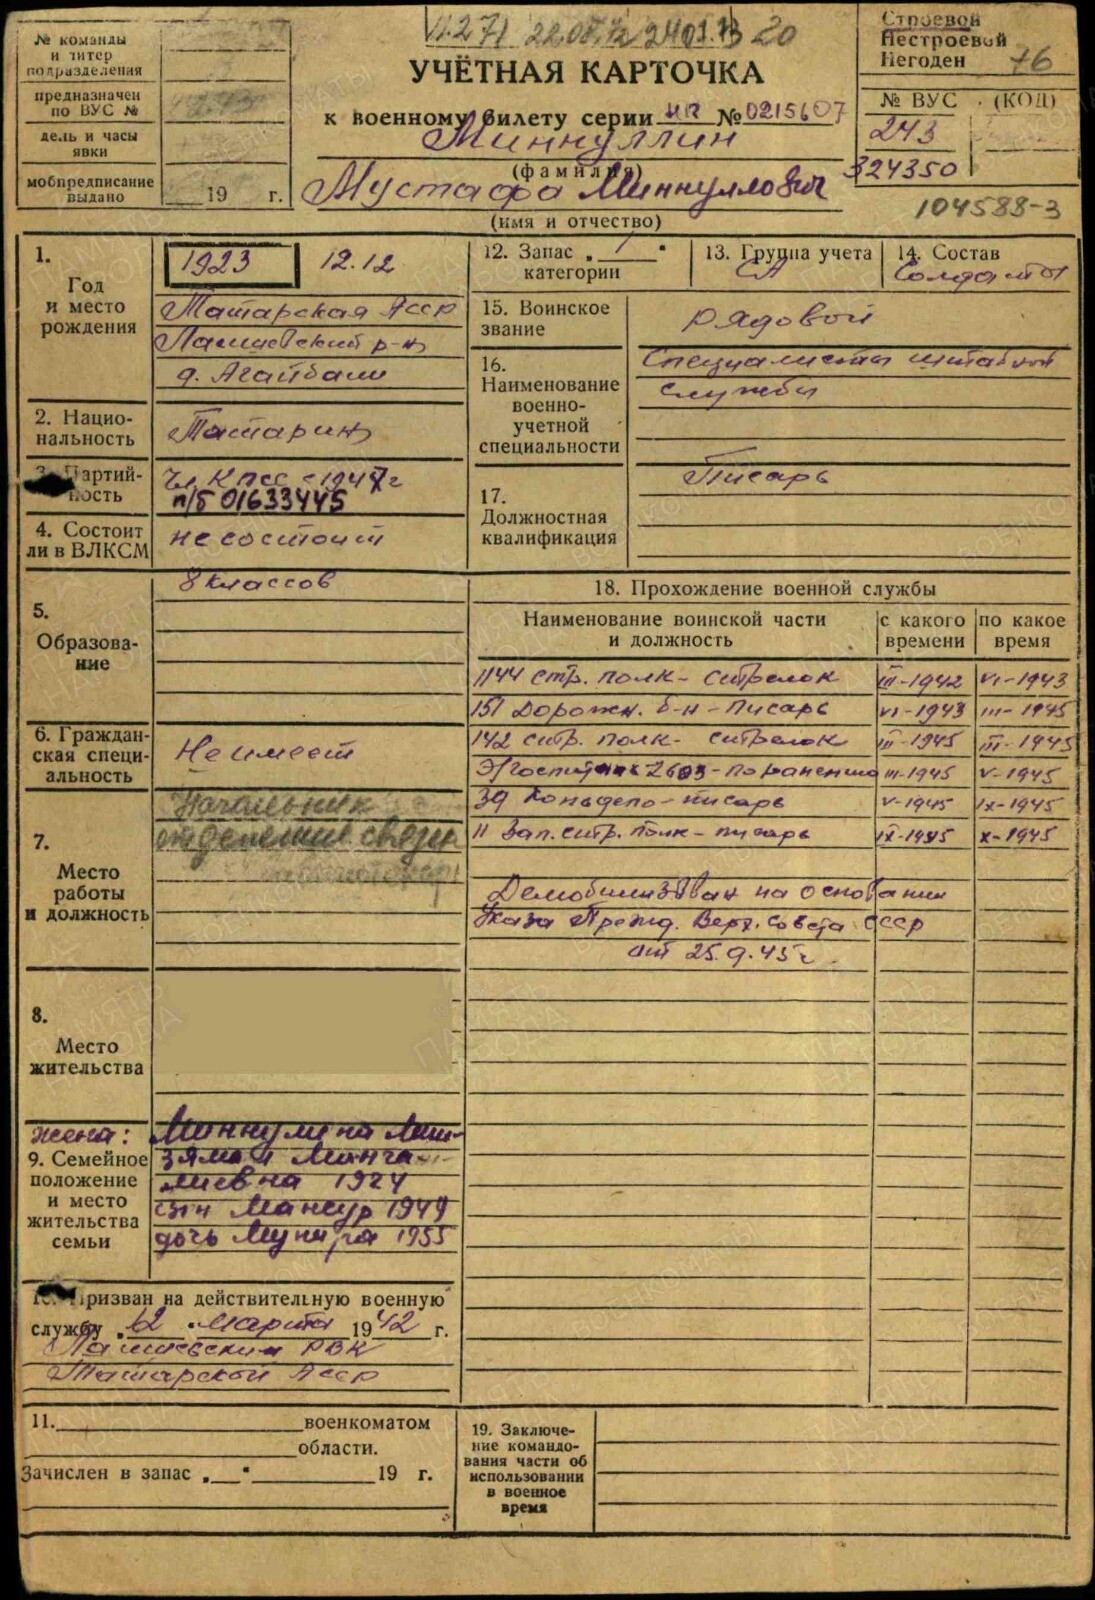 № команды
и литер
подразделения
предназначен
по ВУС №
день и часы
явки
мобпредписание
выдано 19 г.
УЧЁТНАЯ КАРТОЧКА
к военному билету серии НП № 0215607
Миннуллин
(фамилия)
Мустафа Миннуллович
(имя и отчество)
Строевой
Нестроевой
Негоден 76
№ ВУС (КОД)
243
324350
104588-3
1.
Год
и место
рождения
1923 12.12
Татарская АССР
Лаишевский р-н
д. Агайбаш
2. Нацио-
нальность
Татарин
3. Партий-
ность
Чл. КПСС с 1947 г
п/б 01633445
4. Состоит
ли в ВЛКСМ
не состоит
5.
Образова-
ние
8 классов
6. Граждан-
ская специ-
альность
Не имеет
7.
Место
работы
и должность
Начальник
отделения связи
8.
Место
жительства
жена:
9. Семейное
положение
и место
жительства
семьи
Миннулина
1924
сын Мансур 1949
дочь Мунира 1955
10. Призван на действительную военную
службу „12" марта 1942 г.
Лаишевским РВК
Татарской АССР
11. военкоматом
области.
Зачислен в запас „ " 19 г.
12. Запас „ 1 "
категории
13. Группа учета
СА
14. Состав
Солдаты
15. Воинское
звание
рядовой
16.
Наименование
военно-
учетной
специальности
Специалисты штабной
службы
17.
Должностная
квалификация
Писарь
18. Прохождение военной службы
Наименование воинской части
и должность
с какого
времени
по какое
время
1144 стр. полк - стрелок III-1942 VI-1943
151 Дорожн. б-н - писарь VI-1943 III-1945
142 стр. полк - стрелок III-1945 III-1945
Э/госпиталь 2603 - по ранению III-1945 V-1945
39 Конедепо - писарь V-1945 IX-1945
11 Зап. стр. полк - писарь IX-1945 X-1945
Демобилизован на основании
Указа През. Верх. Совета СССР
от 25.9.45 г.
19. Заключе-
ние командо-
вания части об
использовании
в военное
время